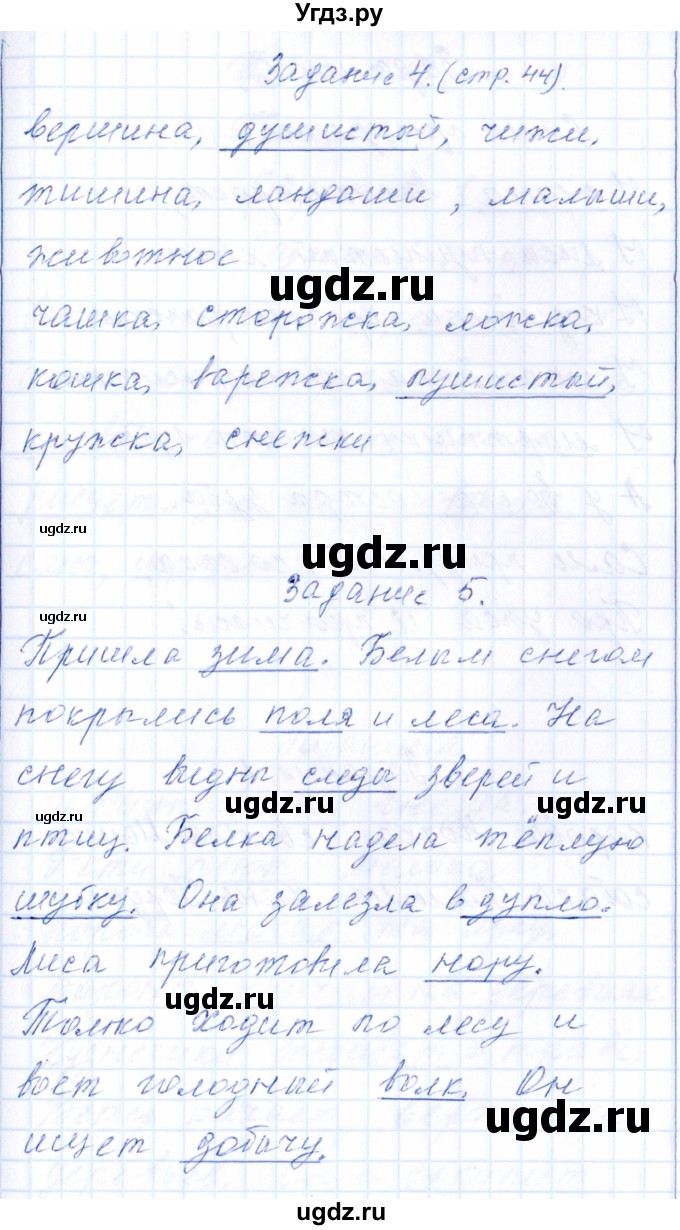 Угдз.ру
Задание 4. (стр. 44).
вершина, душистый, чижи,
тишина, ландаши, малыши,
животное
ugdz.ru
чашка, сторожка, ложка,
кошка, варежка, пушистый,
кружка, снежки
ugdz.ru
ugdz.ru
Задание 5.
ugdz.ru
Пришла зима. Белым снегом
покрылись поля и леса. На
снегу видны следы зверей и
ugdz.ru ugdz.ru ugdz.ru
птиц. Белка надела тёплую
шубку. Она залезла в дупло.
Лиса приготовила нору.
ugdz.ru
Только ходит по лесу и
воет голодный волк. Он
ugdz.ru
ищет добычу.
ugdz.ru